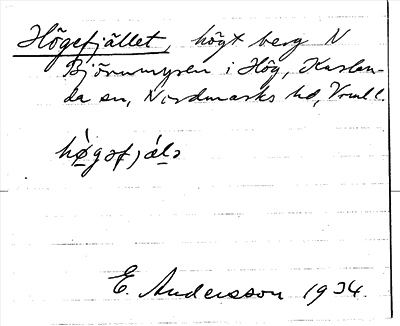 Högefjället, högt berg N
Björnmyren i Hög, Karlan-
da sn, Nordmarks hd, Vrml.
hø̀gəfjɑ́lə
E. Andersson 1934.